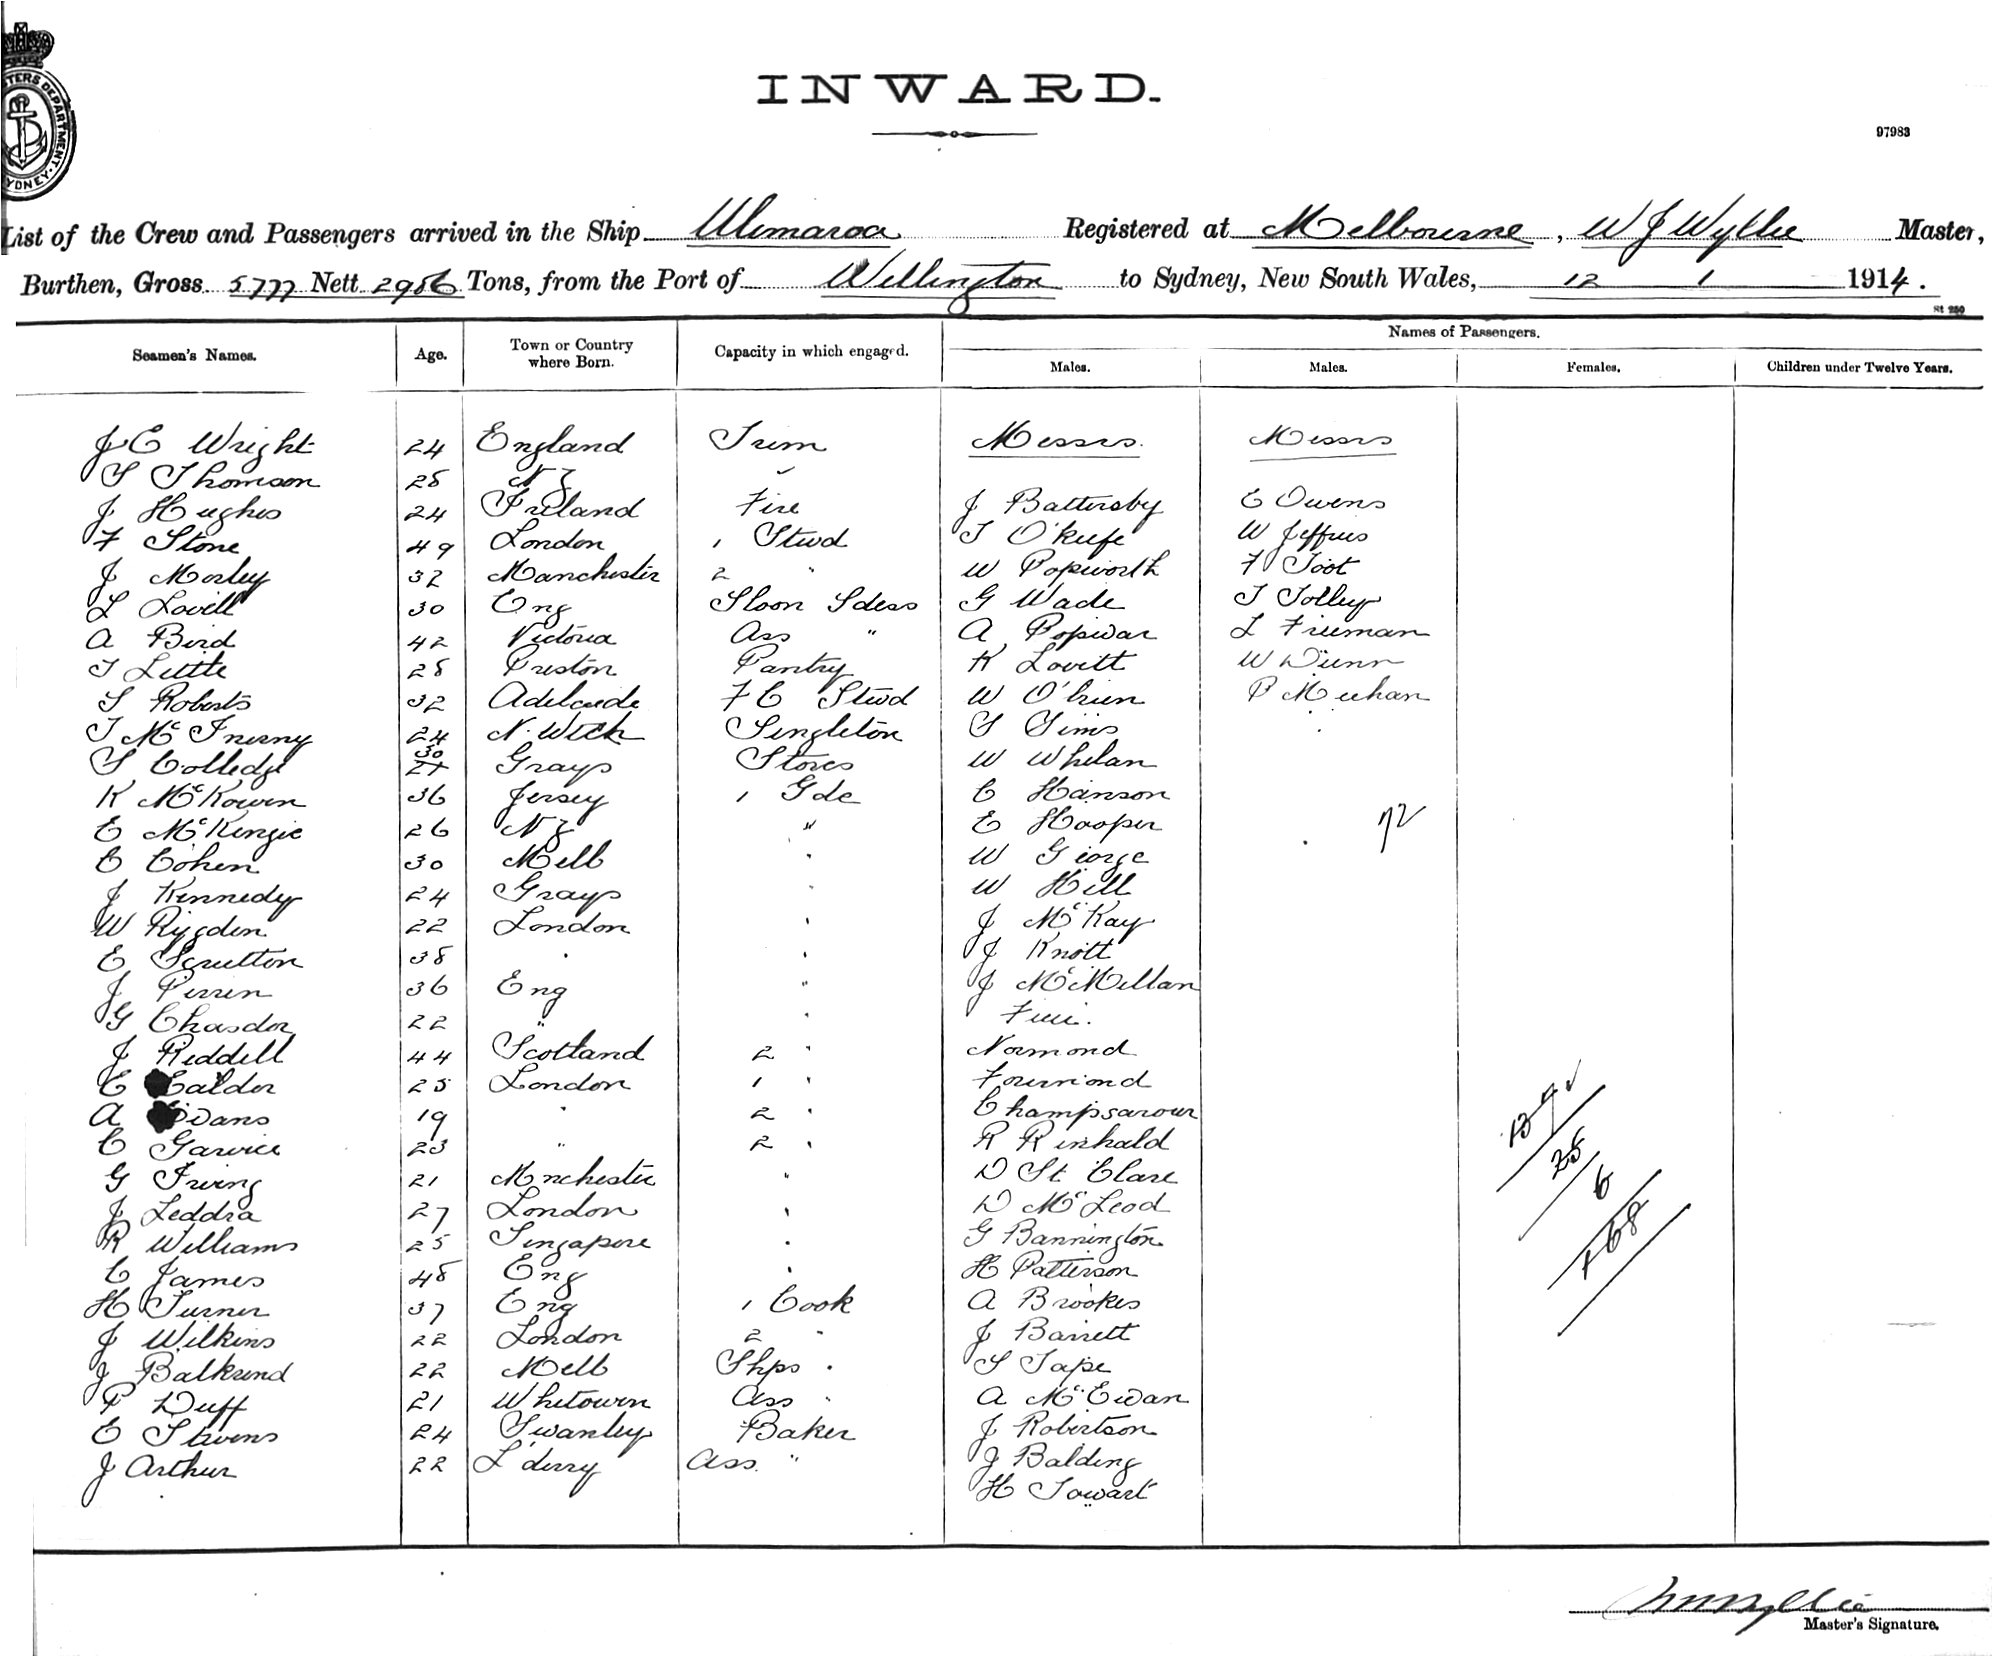 INWARD.
97983
List of the Crew and Passengers arrived in the Ship Ulimaroa Registered at Melbourne, W J Wyllie Master,
Burthen, Gross 5777 Nett 2986 Tons, from the Port of Wellington to Sydney, New South Wales, 12 1 1914.
St 250
Names of Passengers.
Seamen's Names. Age. Town or Country where Born. Capacity in which engaged. Males. Males. Females. Children under Twelve Years.
J C Wright 24 England Trim Messrs. Messrs
S Thomson 28 NZ "
J Hughes 24 Ireland Fire J Battersby E Owens
F Stone 49 London 1 Stwd T O'Keefe W Jeffries
J Morley 32 Manchester 2 " W Popworth F Toot
L Lovell 30 Eng Sloon Sdess G Wade T Tolley
A Bird 42 Victoria Ass " A Popiwar L Freeman
T Little 28 Preston Pantry K Lovitt W Dunn
S Roberts 32 Adelaide F C Stwd W O'brien P Meehan
T McInerny 24 N. Wich Singleton S Sims
S Colledge 30 Grays Stores W Whelan
K McKowen 36 Jersey 1 Gde C Hanson
E McKenzie 26 NZ " E Hooper 72
C Cohen 30 Melb " W George
J Kennedy 24 Grays " W Hill
W Rigden 22 London " J McKay
E Scrutton 38 " " J Knott
J Perren 36 Eng " J McMillan
G Chasdor 22 " "
J Riddell 44 Scotland 2 " Normond
C Calder 25 London 1 " Fourmond
A Evans 19 " 2 " Champsavour
C Garvice 23 " 2 " R Rinhald
G Irving 21 Mnchester " D St Clare
J Leddra 27 London " D McLeod
R Williams 25 Singapore " G Bannington
C James 48 Eng " H Patterson
H Turner 37 Eng 1 Cook A Brookes
J Wilkins 22 London 2 " J Barrett
J Balkund 22 Melb Shps " S Tape
P Duff 21 Whitown Ass " A McEwan
E Stevens 24 Swanley Baker J Robertson
J Arthur 22 L'derry Ass. " J Balding
H Towart
25
6
168
Master's Signature.